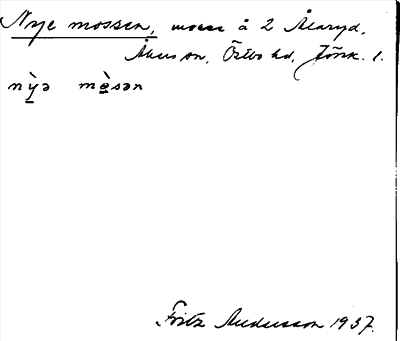 Nye mossen, mosse å 2 Ålaryd,
Åkers sn, Östbo hd, Jönk. l.
nỳ̱ə mè̱sən
Fritz Andersson 1937.